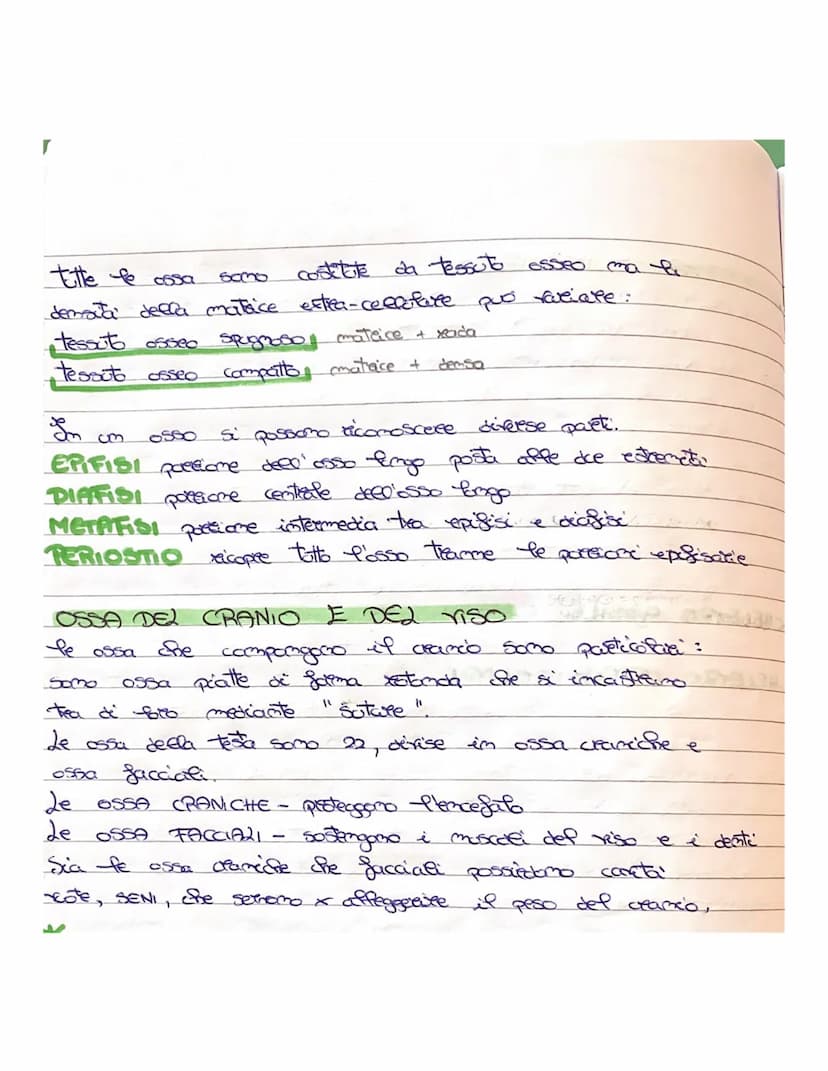 tutte le ossa sono costituite da tessuto osseo ma la
densità della matrice extra-cellulare può variare:
tessuto osseo spugnoso, matrice + rada
tessuto osseo compatto, matrice + densa
In un osso si possono riconoscere diverse parti.
EPIFISI porzione dell'osso lungo posta alle due estremità
DIAFISI porzione centrale dell'osso lungo
METAFISI porzione intermedia tra epifisi e diafisi
PERIOSTIO ricopre tutto l'osso tranne le porzioni epifisarie
OSSA DEL CRANIO E DEL VISO
le ossa che compongono il cranio sono particolari:
sono ossa piatte di forma rotonda che si incastrano
tra di loro mediante "suture".
Le ossa della testa sono 22, divise in ossa craniche e
ossa facciali.
Le OSSA CRANICHE - proteggono l'encefalo
Le OSSA FACCIALI - sostengono i muscoli del viso e i denti
Sia le ossa craniche che facciali possiedono cavità
SENI, che servono x alleggerire il peso del cranio,